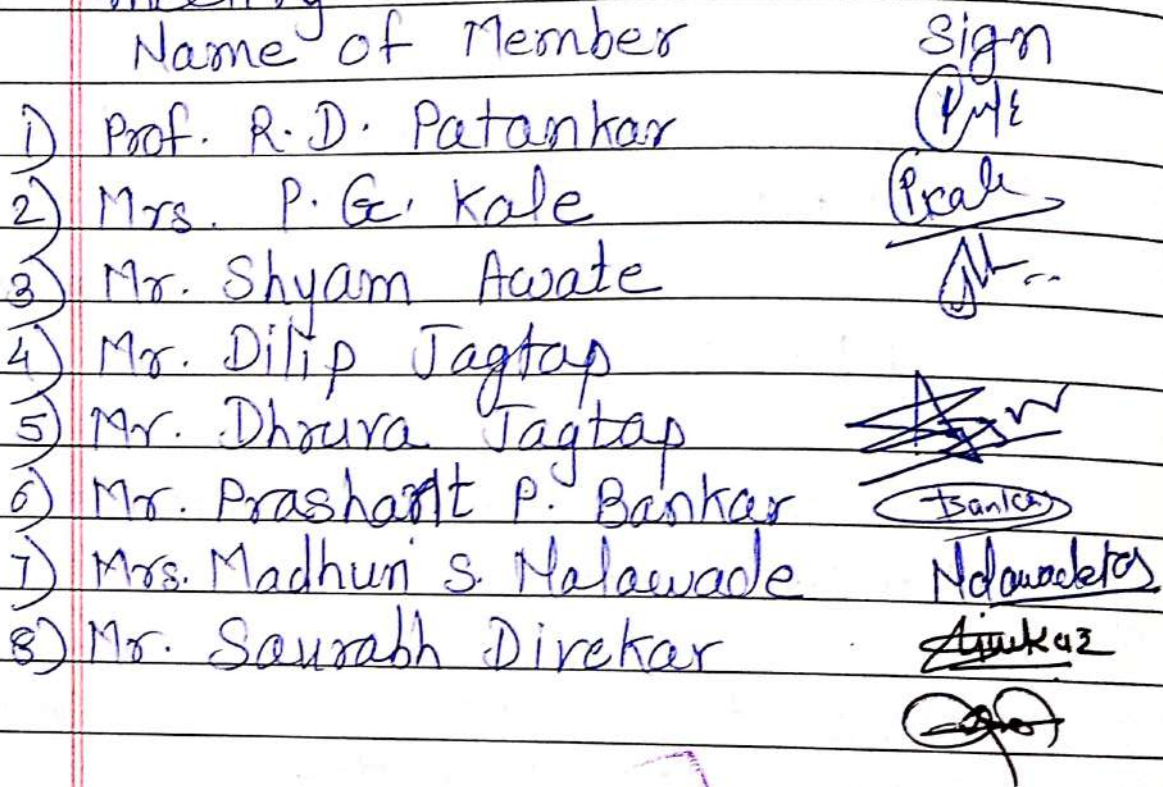 Name of Member Sign
1) Prof. R. D. Patankar
2) Mrs. P. G. Kale
3) Mr. Shyam Awate
4) Mr. Dilip Jagtap
5) Mr. Dhruva Jagtap
6) Mr. Prashant P. Bankar Bankar
7) Mrs. Madhuri S. Nalawade
8) Mr. Saurabh Direkar